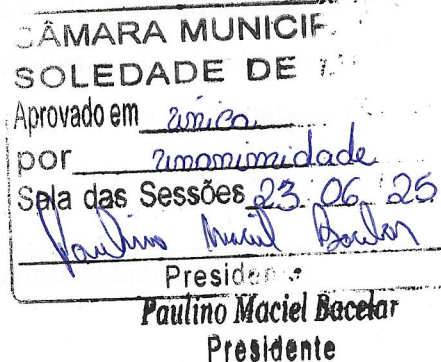 CÂMARA MUNICIP
SOLEDADE DE
Aprovado em única
por unanimidade
Sala das Sessões 23 06 25
Paulino Maciel Bacelar
Presidente
Paulino Maciel Bacelar
Presidente